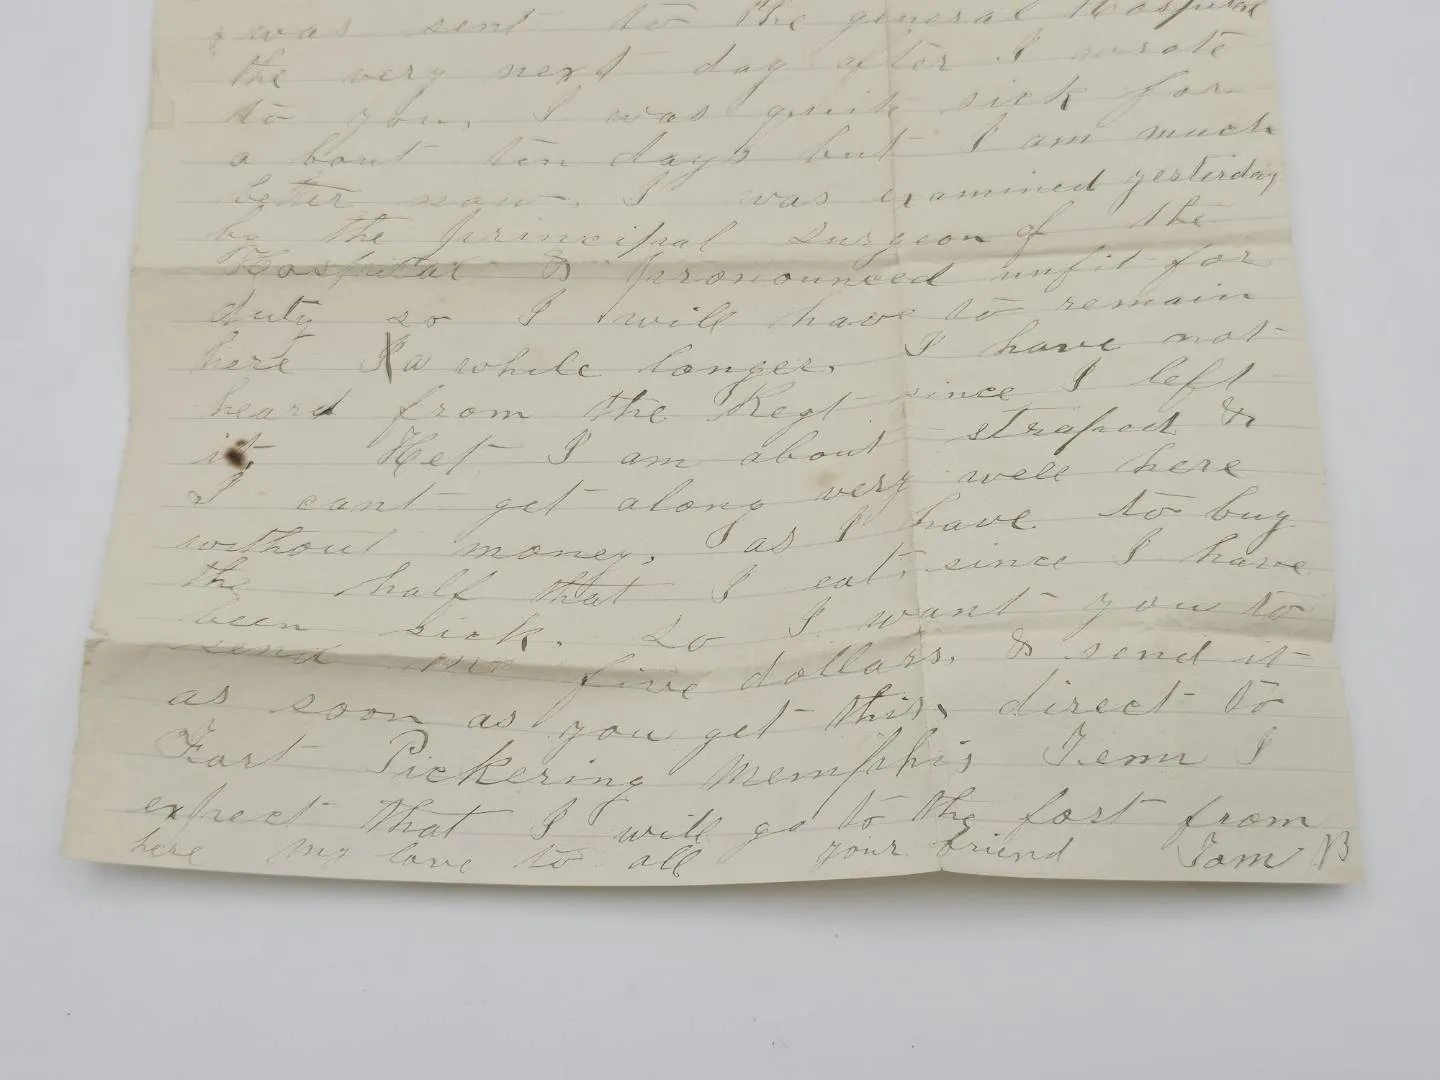 was sent to the general Hospital
the very next day after I wrote
to you, I was quite sick for
a bout ten days but I am much
better now. I was examined yesterday
by the principal surgeon of the
Hospital & pronounced unfit for
duty so I will have to remain
here a while longer. I have not
heard from the Regt since I left
it. Het I am about straped &
I cant get along very well here
without money, as I have to buy
the half that I eat, since I have
been sick. so I want you to
send me five dollars, & send it
as soon as you get this, direct to
Fort Pickering Memphis Tenn I
expect that I will go to the fort from
here my love to all your friend Tom B